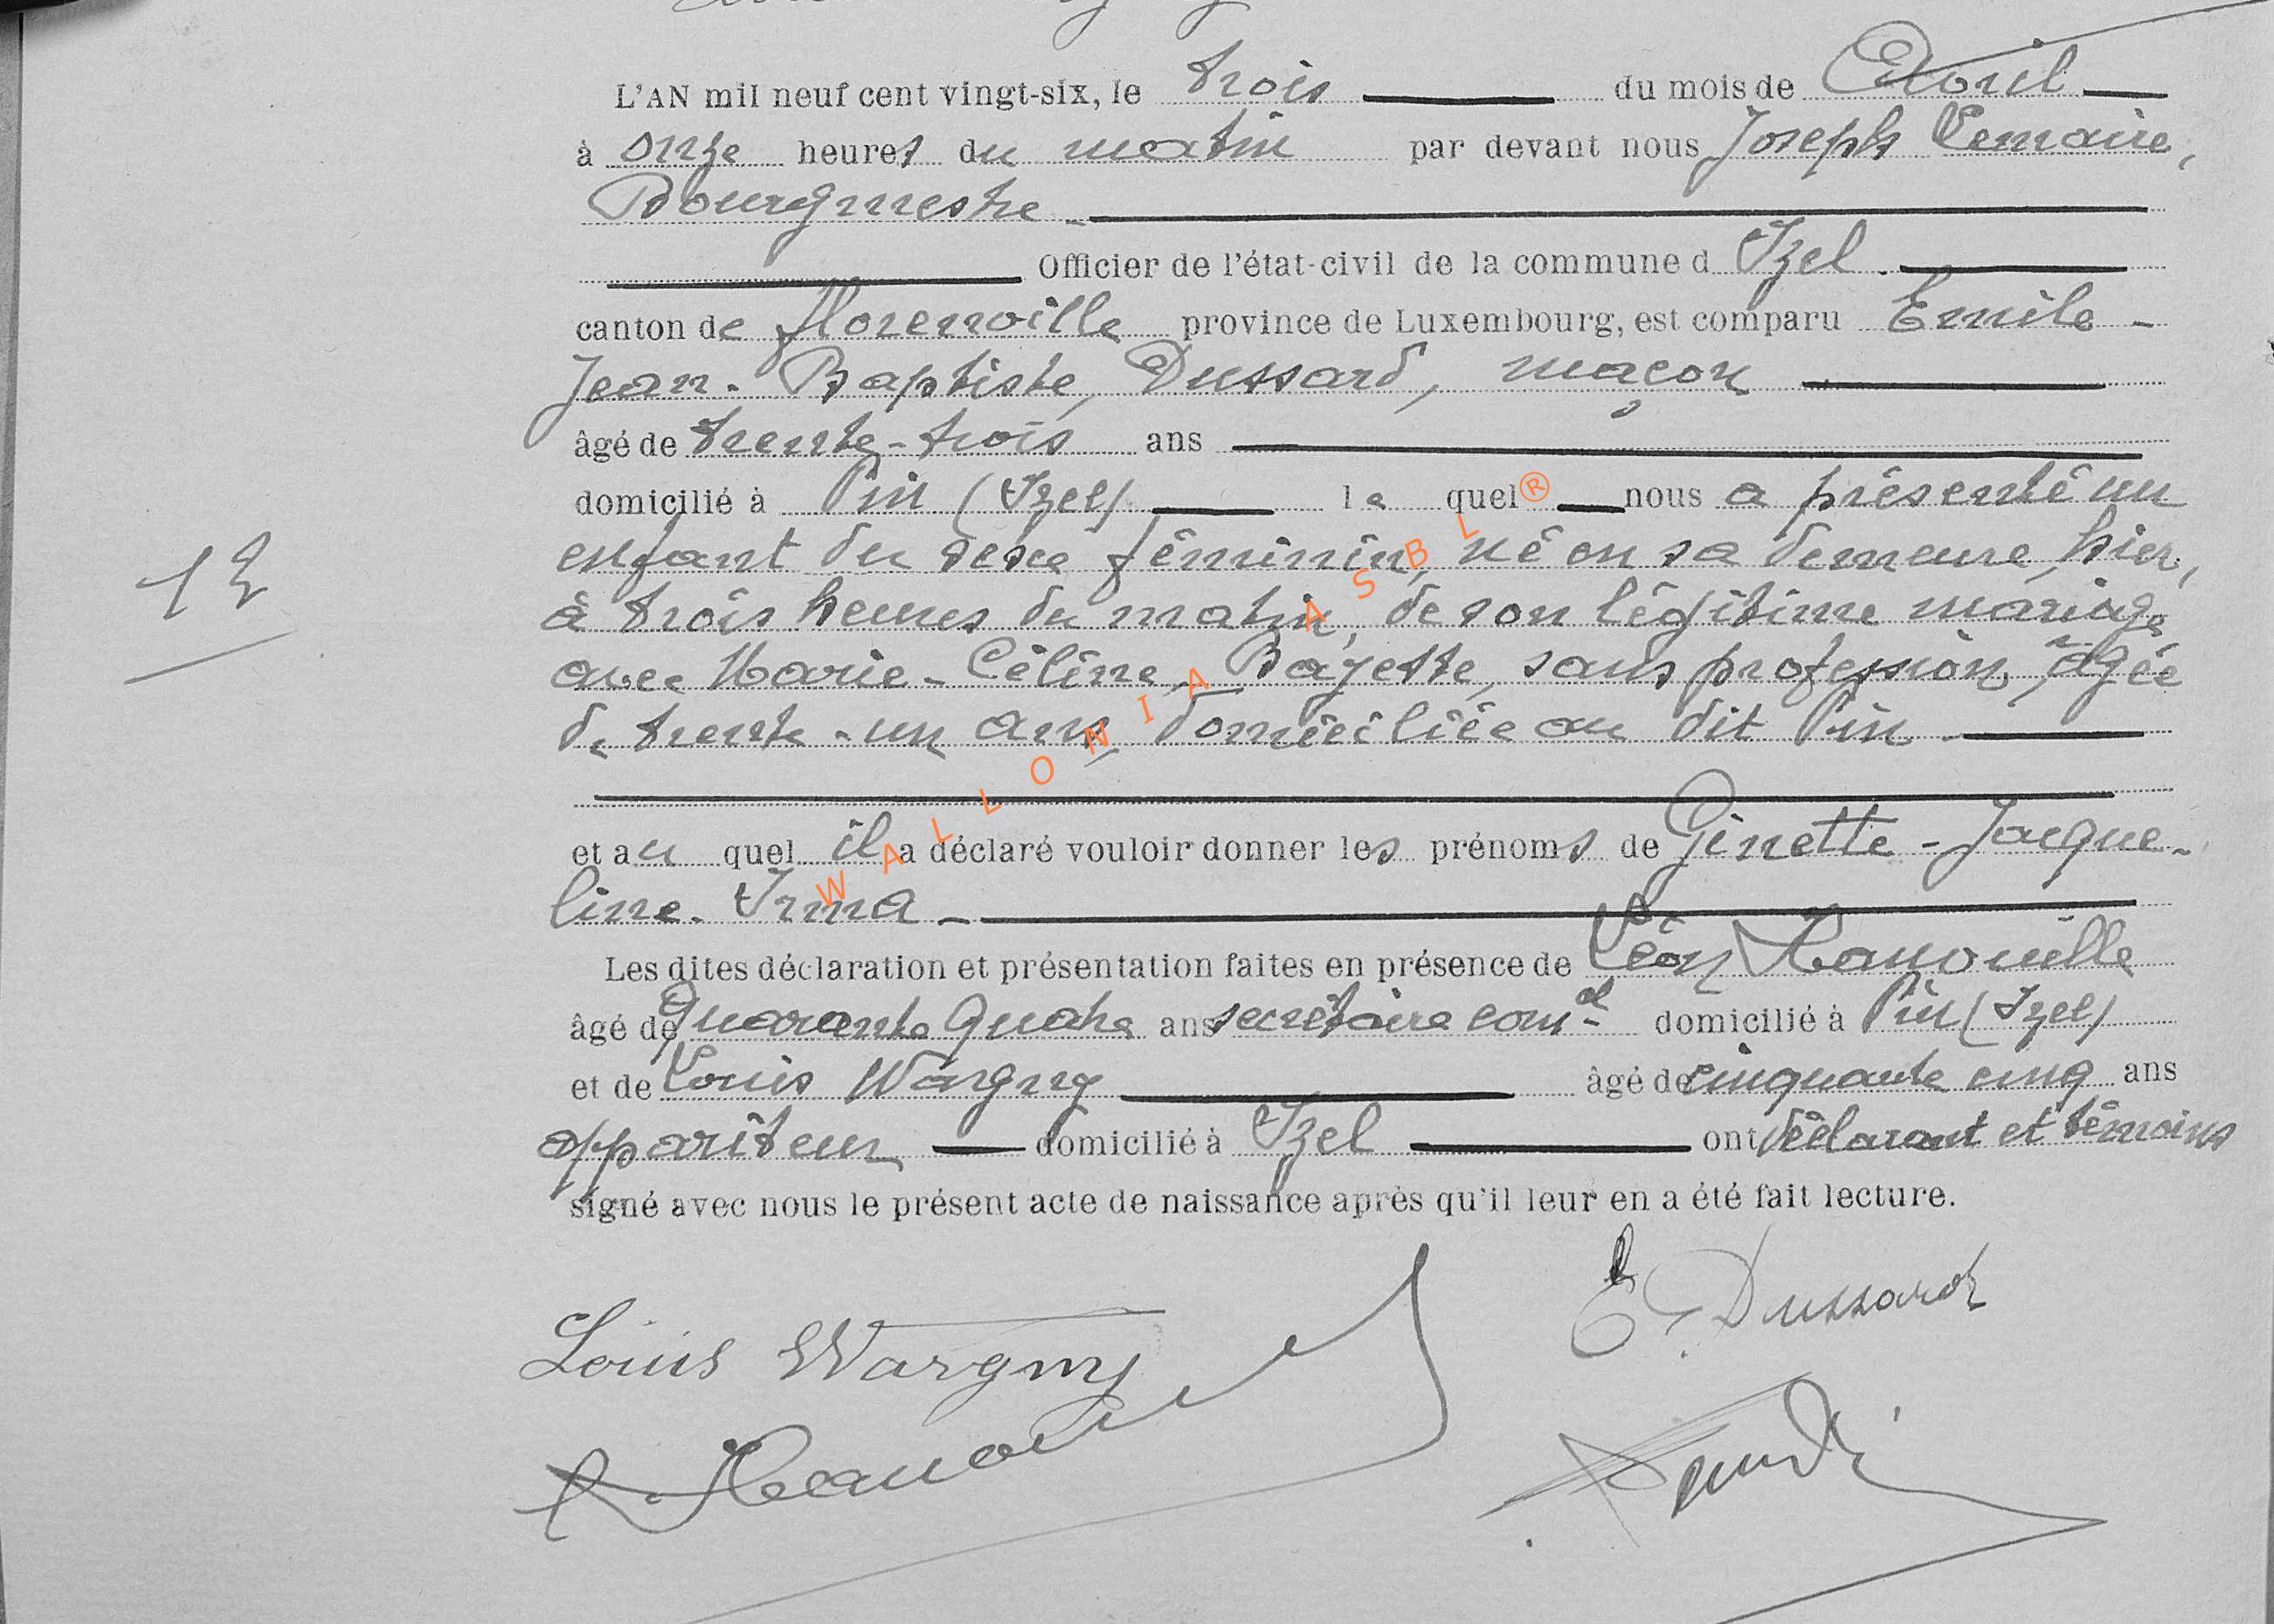 L'AN mil neuf cent vingt-six, le trois du mois de Avril
à onze heures du matin par devant nous Joseph Lemaire,
Bourgmestre
Officier de l'état-civil de la commune d Izel
canton de florenville province de Luxembourg, est comparu Emile -
Jean-Baptiste, Dussard, maçon
âgé de trente-trois ans
domicilié à Pin (Izel) le quel nous a présenté un
enfant du sexe féminin, né en sa demeure, hier,
12
à trois heures du matin, de son légitime mariage
avec Marie-Céline, Bayette, sans profession, âgée
de trente-un ans domiciliée au dit Pin
et au quel il a déclaré vouloir donner les prénoms de Ginette-Jacque-
line-Irma
Les dites déclaration et présentation faites en présence de Léon
âgé de quarante quatre ans secrétaire comal domicilié à Pin (Izel)
et de Louis Wargny âgé de cinquante cinq ans
appariteur domicilié à Izel ont déclarant et témoins
signé avec nous le présent acte de naissance après qu'il leur en a été fait lecture.
E. Dussard
Louis Wargny
WALLONIA ASBL ®